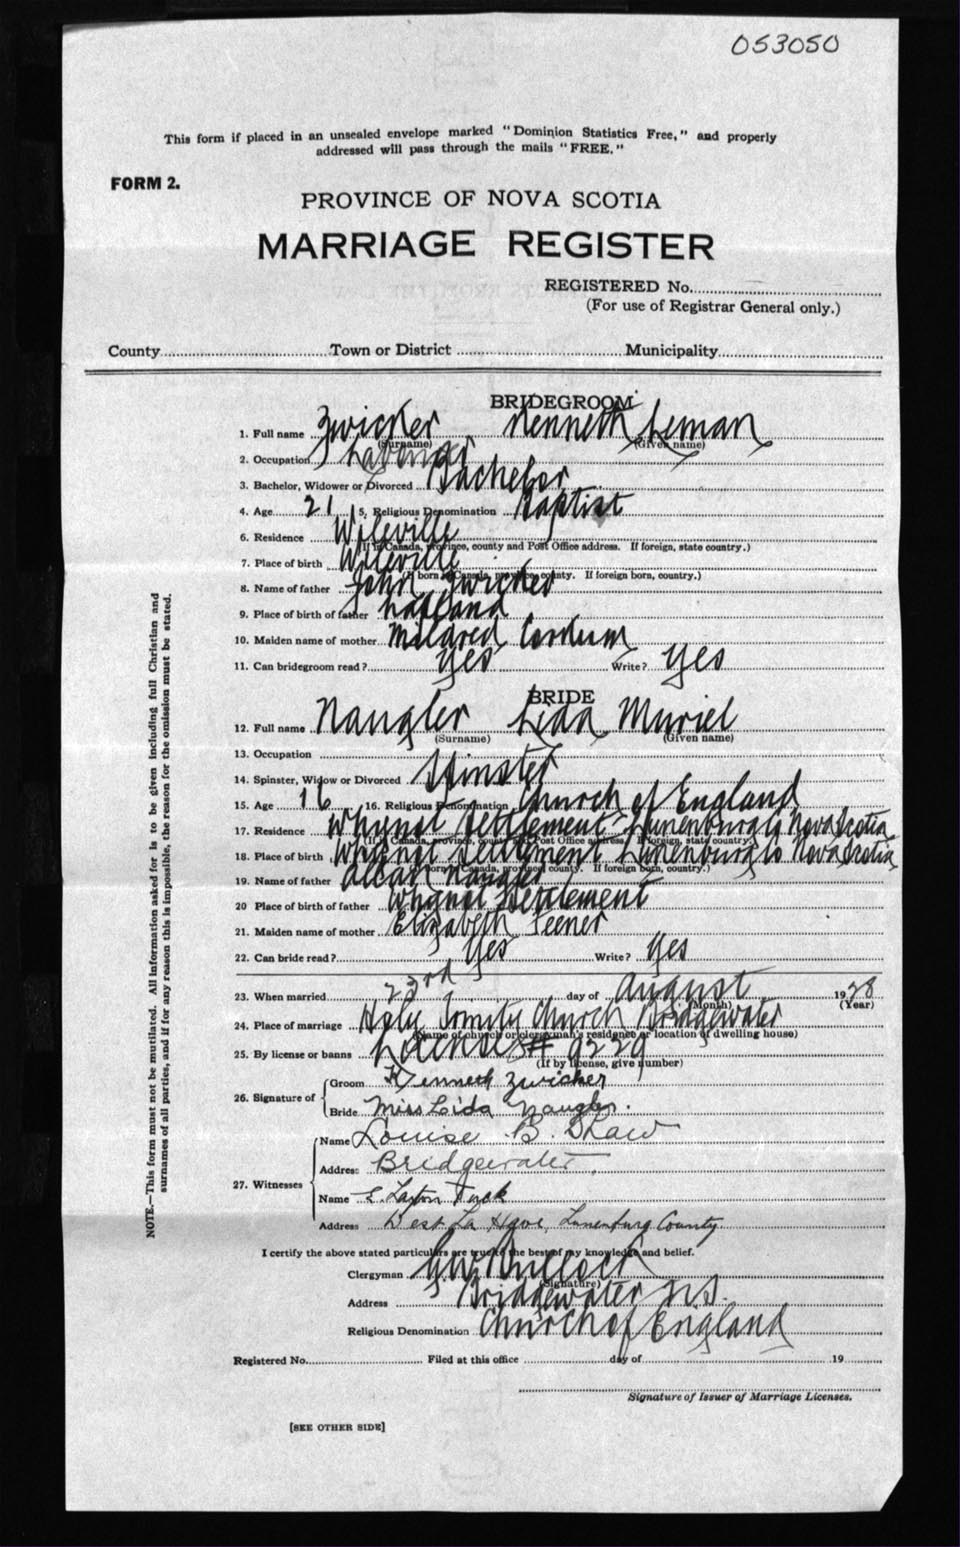 053050
This form if placed in an unsealed envelope marked "Dominion Statistics Free," and properly
addressed will pass through the mails "FREE."
FORM 2.
PROVINCE OF NOVA SCOTIA
MARRIAGE REGISTER
REGISTERED No.
(For use of Registrar General only.)
County Town or District Municipality
BRIDEGROOM
1. Full name Zwicker Kenneth Leman
(Surname) (Given name)
2. Occupation Labourer
3. Bachelor, Widower or Divorced Bachelor
4. Age 21 5. Religious Denomination Baptist
6. Residence Wileville
(If in Canada, province, county and Post Office address. If foreign, state country.)
7. Place of birth Wileville
(If born in Canada, province, county. If foreign born, country.)
8. Name of father John Zwicker
9. Place of birth of father Lapland
10. Maiden name of mother Mildred Corkum
11. Can bridegroom read? yes Write? yes
BRIDE
12. Full name Naugler Lida Muriel
(Surname) (Given name)
13. Occupation
14. Spinster, Widow or Divorced Spinster
15. Age 16 16. Religious Denomination Church of England
17. Residence Whynot Settlement Lunenburg Co Nova Scotia
(If in Canada, province, county and Post Office address. If foreign, state country.)
18. Place of birth Whynot Settlement Lunenburg Co Nova Scotia
(If born in Canada, province, county. If foreign born, country.)
19. Name of father Naugler
20 Place of birth of father Whynot Settlement
21. Maiden name of mother Elizabeth Feener
22. Can bride read? Yes Write? Yes
23. When married 23rd day of August 1928
(Month) (Year)
24. Place of marriage Holy Trinity Church Bridgewater
(Name of church or clergyman's residence or location of dwelling house)
25. By license or banns License # 9229
(If by license, give number)
26. Signature of
Groom Kenneth Zwicker
Bride Miss Lida Naugler.
27. Witnesses
Name Louise B. Shaw
Address Bridgewater.
Name S. Layton Tuck
Address West La Have, Lunenburg County
I certify the above stated particulars are true to the best of my knowledge and belief.
Clergyman GW Bullock
(Signature)
Address Bridgewater N.S.
Religious Denomination Church of England
Registered No. Filed at this office day of 19
Signature of Issuer of Marriage Licenses.
[SEE OTHER SIDE]
NOTE.—This form must not be mutilated. All information asked for is to be given including full Christian and
surnames of all parties, and if for any reason this is impossible, the reason for the omission must be stated.